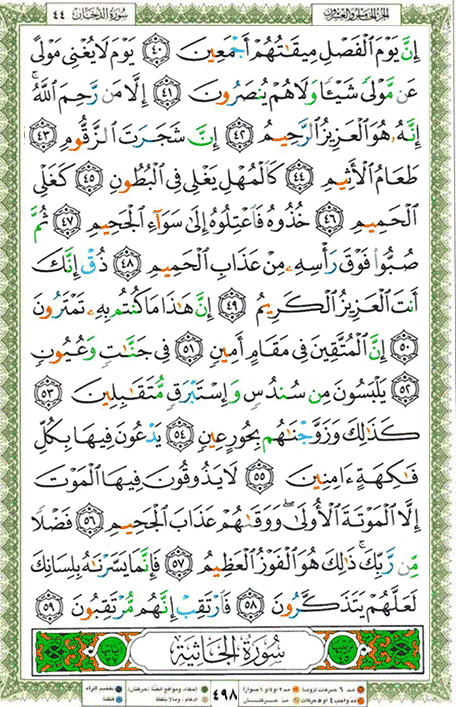 الجزء الخامس والعشرون سورة الدخان ٤٤
إِنَّ يَوْمَ ٱلْفَصْلِ مِيقَٰتُهُمْ أَجْمَعِينَ ٤٠ يَوْمَ لَا يُغْنِى مَوْلًى
عَن مَّوْلًى شَيْـًٔا وَلَا هُمْ يُنصَرُونَ ٤١ إِلَّا مَن رَّحِمَ ٱللَّهُ ۚ
إِنَّهُۥ هُوَ ٱلْعَزِيزُ ٱلرَّحِيمُ ٤٢ إِنَّ شَجَرَتَ ٱلزَّقُّومِ ٤٣
طَعَامُ ٱلْأَثِيمِ ٤٤ كَٱلْمُهْلِ يَغْلِى فِى ٱلْبُطُونِ ٤٥ كَغَلْىِ
ٱلْحَمِيمِ ٤٦ خُذُوهُ فَٱعْتِلُوهُ إِلَىٰ سَوَآءِ ٱلْجَحِيمِ ٤٧ ثُمَّ
صُبُّوا۟ فَوْقَ رَأْسِهِۦ مِنْ عَذَابِ ٱلْحَمِيمِ ٤٨ ذُقْ إِنَّكَ
أَنتَ ٱلْعَزِيزُ ٱلْكَرِيمُ ٤٩ إِنَّ هَٰذَا مَا كُنتُم بِهِۦ تَمْتَرُونَ
٥٠ إِنَّ ٱلْمُتَّقِينَ فِى مَقَامٍ أَمِينٍ ٥١ فِى جَنَّٰتٍ وَعُيُونٍ
٥٢ يَلْبَسُونَ مِن سُندُسٍ وَإِسْتَبْرَقٍ مُّتَقَٰبِلِينَ ٥٣
كَذَٰلِكَ وَزَوَّجْنَٰهُم بِحُورٍ عِينٍ ٥٤ يَدْعُونَ فِيهَا بِكُلِّ
فَٰكِهَةٍ ءَامِنِينَ ٥٥ لَا يَذُوقُونَ فِيهَا ٱلْمَوْتَ
إِلَّا ٱلْمَوْتَةَ ٱلْأُولَىٰ ۖ وَوَقَىٰهُمْ عَذَابَ ٱلْجَحِيمِ ٥٦ فَضْلًا
مِّن رَّبِّكَ ۚ ذَٰلِكَ هُوَ ٱلْفَوْزُ ٱلْعَظِيمُ ٥٧ فَإِنَّمَا يَسَّرْنَٰهُ بِلِسَانِكَ
لَعَلَّهُمْ يَتَذَكَّرُونَ ٥٨ فَٱرْتَقِبْ إِنَّهُم مُّرْتَقِبُونَ ٥٩
سُورَةُ الجَاثِيَةِ
٤٩٨